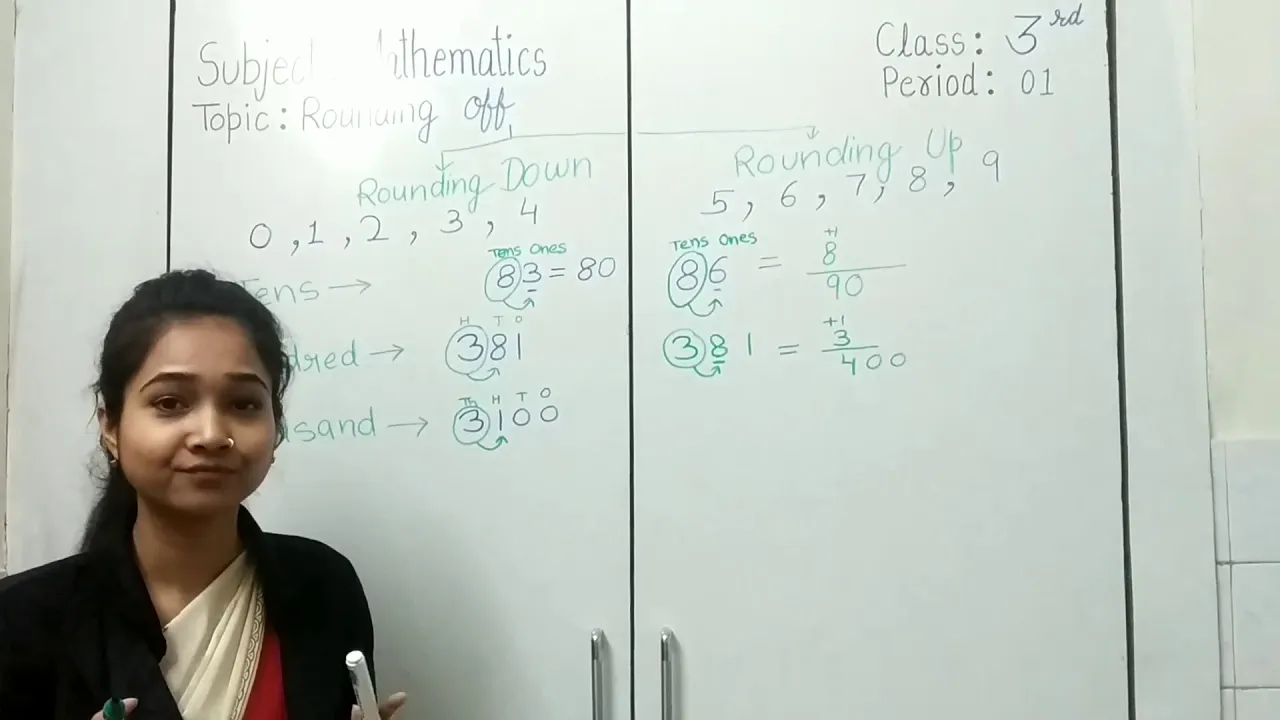 Subject: Mathematics
Topic: Rounding off
Class: 3rd
Period: 01
Rounding Down
0, 1, 2, 3, 4
Tens Ones
Tens → 83 = 80
H T O
→ 381
Th H T O
→ 3100
Rounding Up
5, 6, 7, 8, 9
Tens Ones
+1
86 = 8
90
+1
381 = 3
400